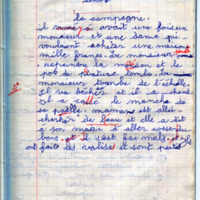 la campagne.
il y avait une fois un
monsieur et une dame qui
voulaient acheter une maison
mille francs. Le monsieur
reprendre la maison et le
pot de peinture tombe. Le
monsieur tombe de l'échelle.
il va bêcher et il a chaud.
il a cassé le manche de
sa pelle. maman est allée
chercher de l'eau et elle a dit
à son mari d'aller couper du
bois et il s'est fait mal et ils
ont fait les valises et sont partis